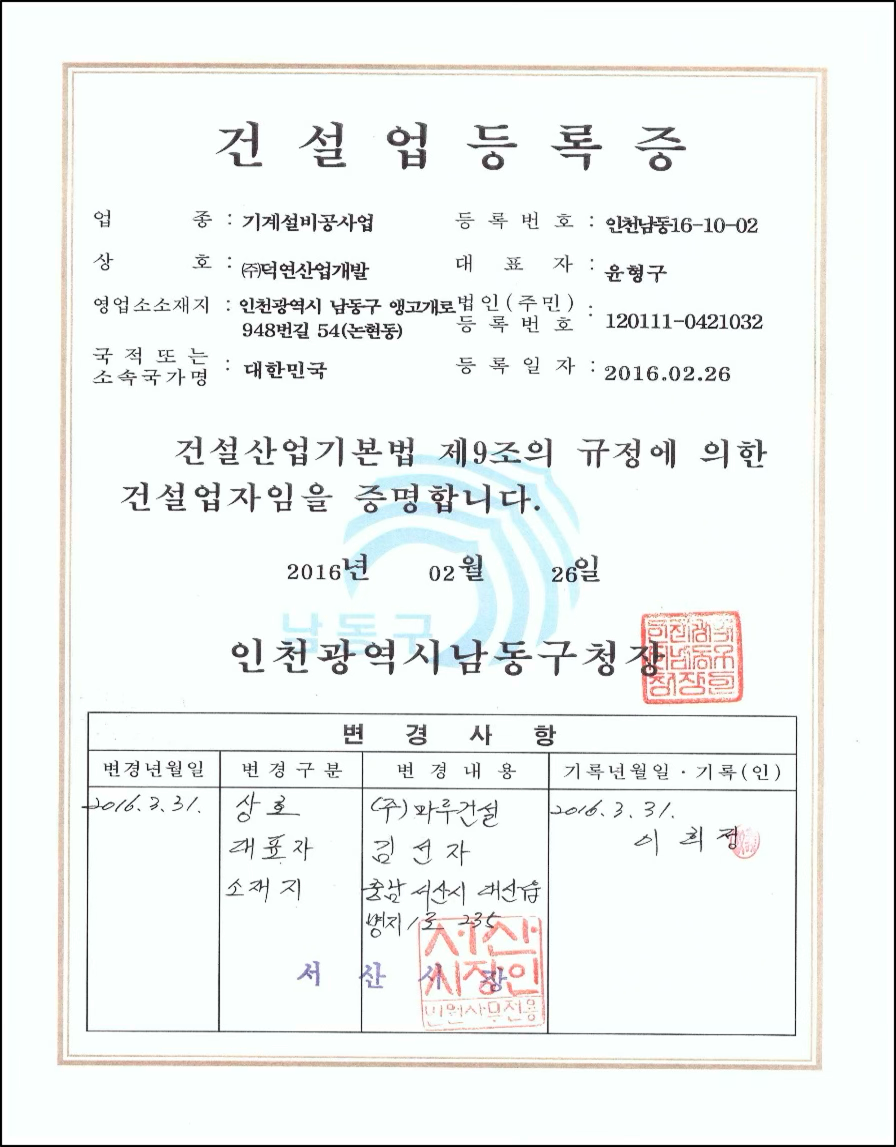 건설업등록증
업 종 : 기계설비공사업 등 록 번 호 : 인천남동16-10-02
상 호 : ㈜덕연산업개발 대 표 자 : 윤형구
영업소소재지 : 인천광역시 남동구 앵고개로 법인(주민) :
948번길 54(논현동) 등 록 번 호 120111-0421032
국 적 또 는 : 대한민국 등 록 일 자 : 2016.02.26
소속국가명
건설산업기본법 제9조의 규정에 의한
건설업자임을 증명합니다.
2016년 02월 26일
남동구
인천광역시남동구청장
변 경 사 항
변경년월일 변경구분 변경내용 기록년월일·기록(인)
2016.3.31. 상호 (주)파루건설 2016.3.31.
대표자 김선자 이희정
소재지 충남 서산시 대산읍
명지1로 235
서 산 시 장
서산
시장인
민원사무전용